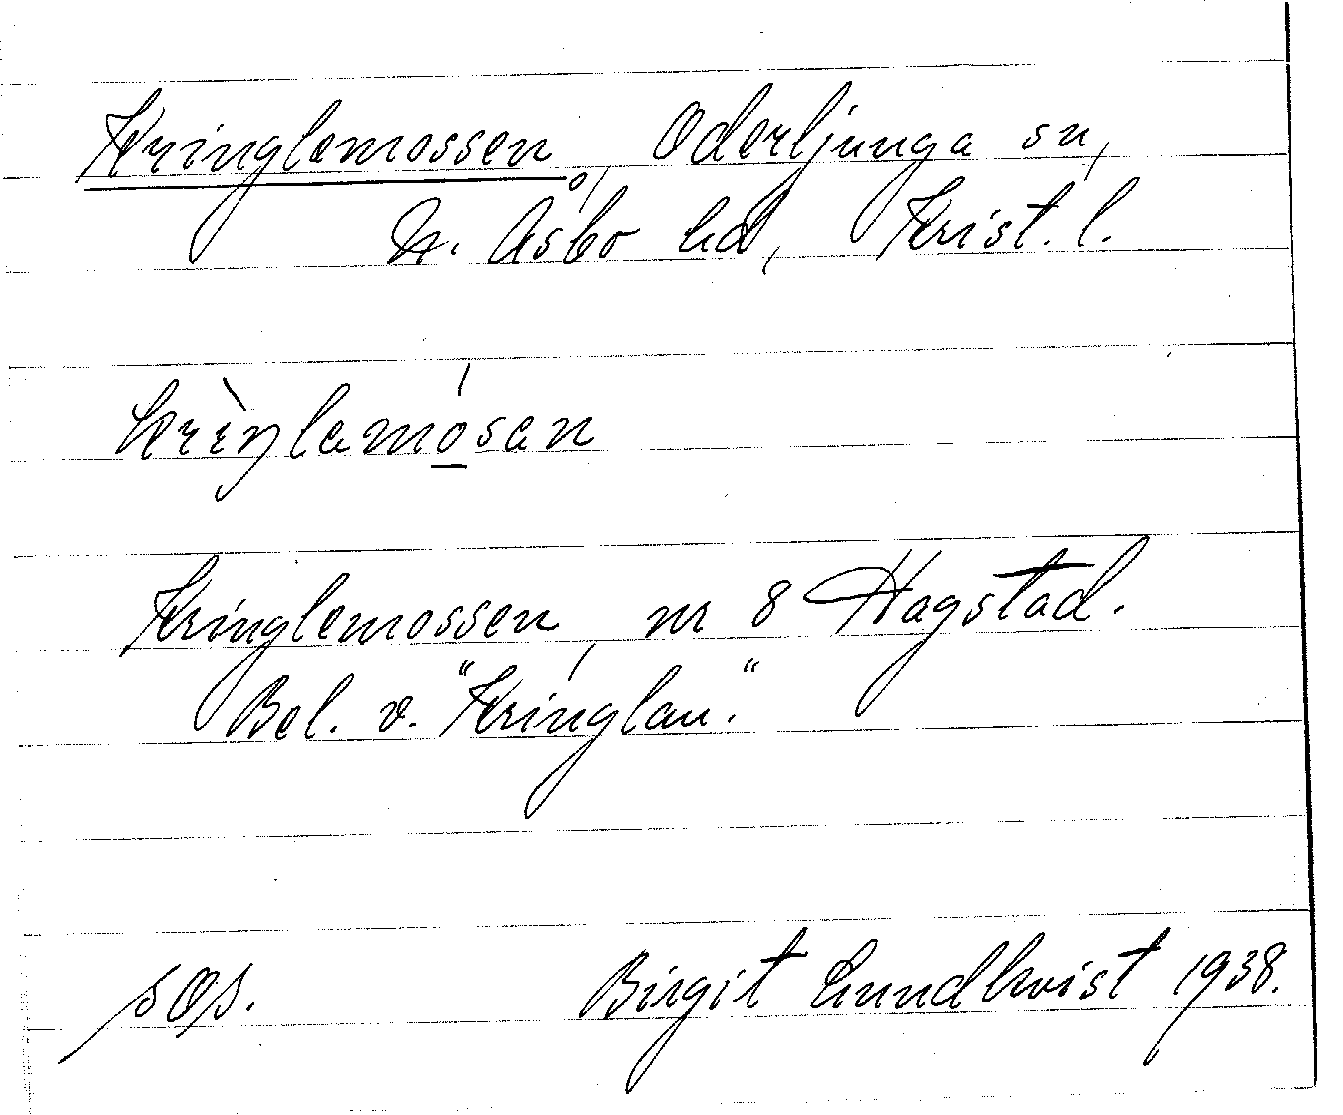 Kringlemossen, Oderljunga sn,
N. Åsbo hd, Krist. l.
krìŋlamósan
Kringlemossen, nr 8 Hagstad.
Bel. v. "Kringlan."
sOs. Birgit Lundkvist 1938.